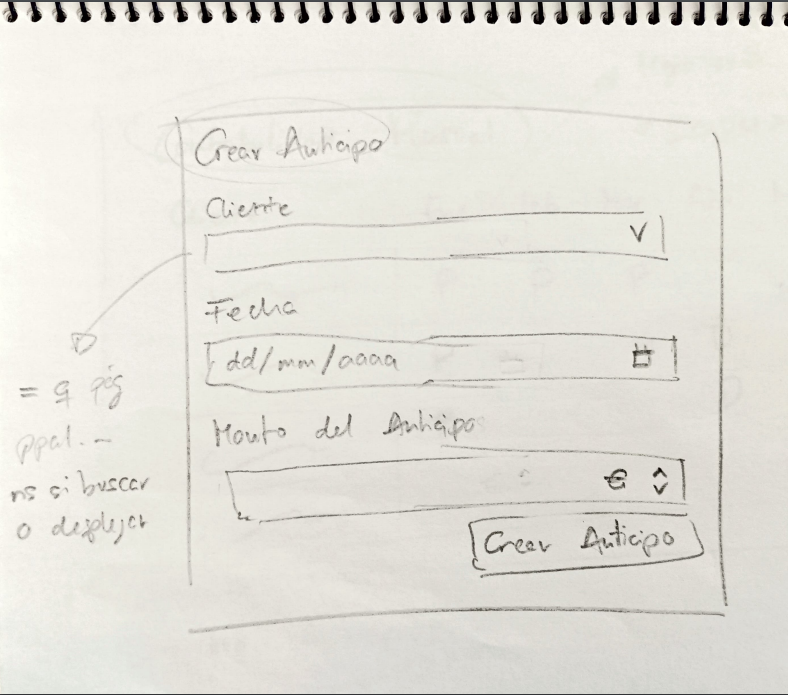 Crear Anticipo
Cliente
V
Fecha
dd/mm/aaaa
Monto del Anticipo
€
Crear Anticipo
= q pág
ppal. -
ns si buscar
o desplejar